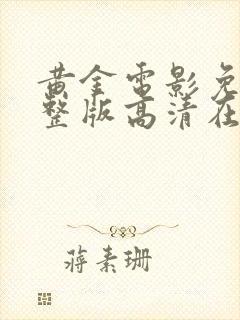 黄金电影免
整版高清在
蒋素珊